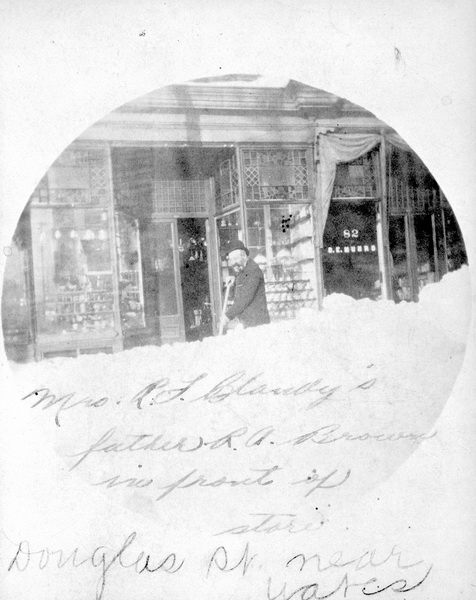 82
Mrs. R. S. Blandy's
father R. A. Brown
in front of
store.
Douglas St. near
Yates